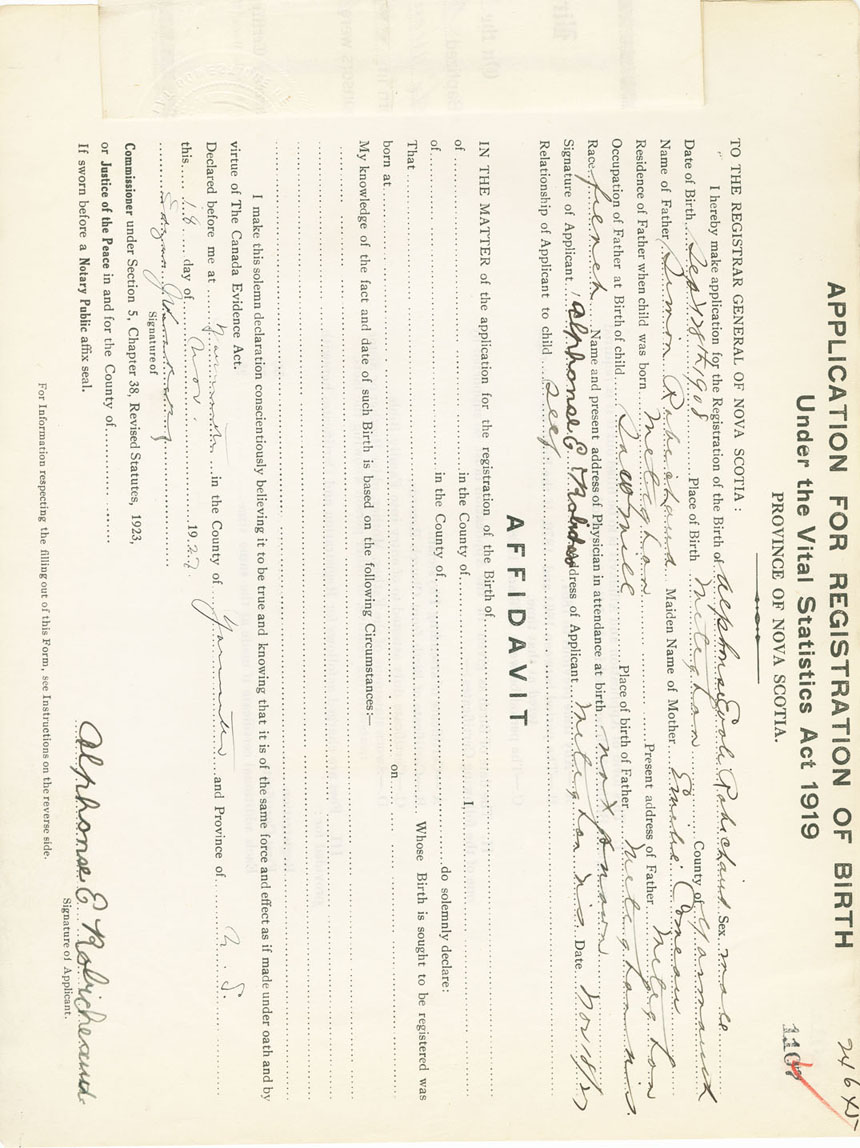 246
1107
APPLICATION FOR REGISTRATION OF BIRTH
Under the Vital Statistics Act 1919
PROVINCE OF NOVA SCOTIA.
TO THE REGISTRAR GENERAL OF NOVA SCOTIA :
I hereby make application for the Registration of the Birth of Alphonse Robichaud Sex male
Date of Birth Sept 1908 Place of Birth Meteghan County of Yarmouth
Name of Father Simon Robichaud Maiden Name of Mother Emilie Comeau
Residence of Father when child was born Meteghan Present address of Father Meteghan
Occupation of Father at Birth of child Place of birth of Father Meteghan N.S.
Race french Name and present address of Physician in attendance at birth not known
Signature of Applicant Alphonse E Address of Applicant Meteghan N S Date Nov
Relationship of Applicant to child Seef
AFFIDAVIT
IN THE MATTER of the application for the registration of the Birth of
of in the County of I,
of in the County of do solemnly declare:
That Whose Birth is sought to be registered was
born at on
My knowledge of the fact and date of such Birth is based on the following Circumstances:—
I make this solemn declaration conscientiously believing it to be true and knowing that it is of the same force and effect as if made under oath and by
virtue of The Canada Evidence Act.
Declared before me at Yarmouth in the County of Yarmouth and Province of N. S.
this 18 day of Nov. 1927
Signature of
Commissioner under Section 5, Chapter 38, Revised Statutes, 1923,
or Justice of the Peace in and for the County of
If sworn before a Notary Public affix seal.
Alphonse E Robicheaud
Signature of Applicant.
For Information respecting the filling out of this Form, see Instructions on the reverse side.